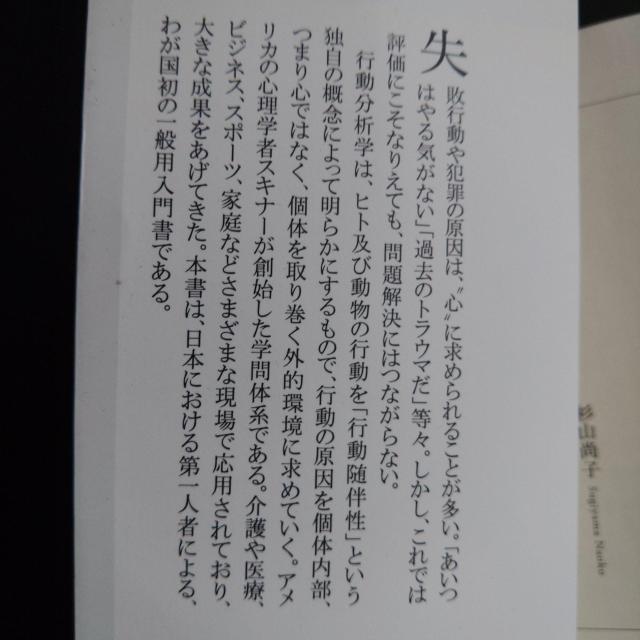 失敗行動や犯罪の原因は、〝心〟に求められることが多い。「あいつ
はやる気がない」「過去のトラウマだ」等々。しかし、これでは
評価にこそなりえても、問題解決にはつながらない。
行動分析学は、ヒト及び動物の行動を「行動随伴性」という
独自の概念によって明らかにするもので、行動の原因を個体内部、
つまり心ではなく、個体を取り巻く外的環境に求めていく。アメ
リカの心理学者スキナーが創始した学問体系である。介護や医療、
ビジネス、スポーツ、家庭などさまざまな現場で応用されており、
大きな成果をあげてきた。本書は、日本における第一人者による、
わが国初の一般用入門書である。
杉山尚子
Sugiyama Naoko